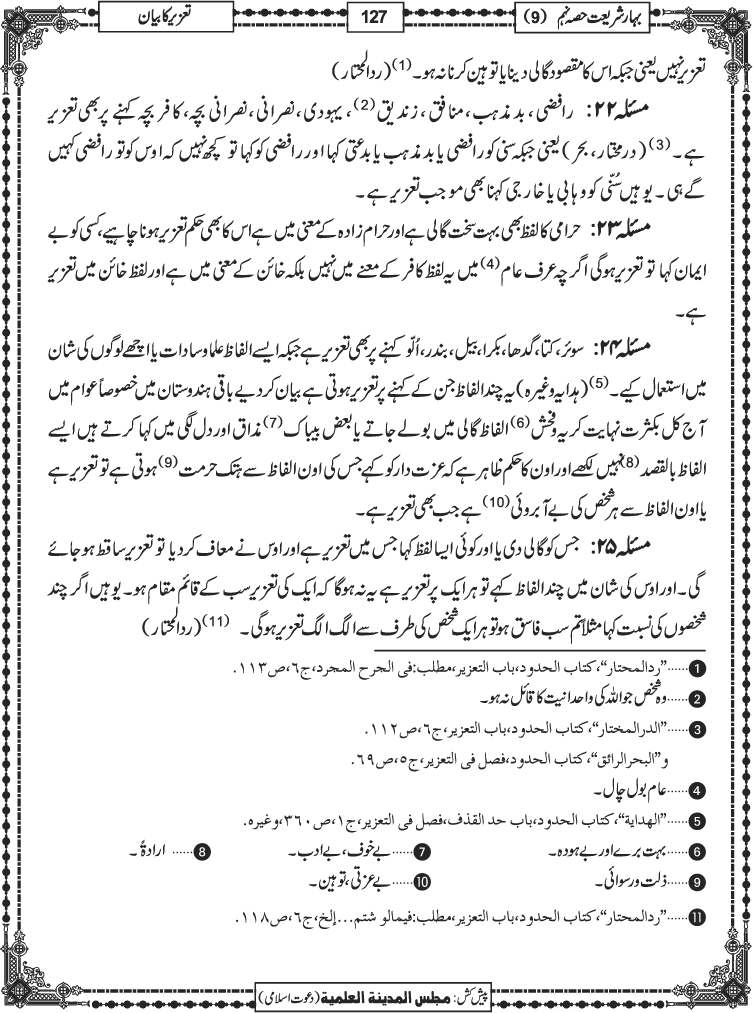 بہارِ شریعت حصہ نہم (9)
127
تعزیر کا بیان
تعزیر نہیں یعنی جبکہ اس کا مقصود گالی دینا یا توہین کرنا نہ ہو۔(1) (ردالمحتار)
مسئلہ ۲۲: رافضی، بدمذہب، منافق، زندیق(2)، یہودی، نصرانی، نصرانی بچہ، کافر بچہ کہنے پر بھی تعزیر
ہے۔(3) (درمختار، بحر) یعنی جبکہ سنی کو رافضی یا بدمذہب یا بدعتی کہا اور رافضی کو کہا تو کچھ نہیں کہ اوس کو تو رافضی کہیں
گے ہی۔ یوہیں سُنّی کو وہابی یا خارجی کہنا بھی موجب تعزیر ہے۔
مسئلہ ۲۳: حرامی کا لفظ بھی بہت سخت گالی ہے اور حرام زادہ کے معنی میں ہے اس کا بھی حکم تعزیر ہونا چاہیے، کسی کو بے
ایمان کہا تو تعزیر ہوگی اگرچہ عرف عام(4) میں یہ لفظ کافر کے معنے میں نہیں بلکہ خائن کے معنی میں ہے اور لفظ خائن میں تعزیر
ہے۔
مسئلہ ۲۴: سوئر، کتا، گدھا، بکرا، بیل، بندر، اُلّو کہنے پر بھی تعزیر ہے جبکہ ایسے الفاظ علما و سادات یا اچھے لوگوں کی شان
میں استعمال کیے۔(5) (ہدایہ وغیرہ) یہ چند الفاظ جن کے کہنے پر تعزیر ہوتی ہے بیان کر دیے باقی ہندوستان میں خصوصاً عوام میں
آج کل بکثرت نہایت کریہ و فحش(6) الفاظ گالی میں بولے جاتے یا بعض بیباک(7) مذاق اور دل لگی میں کہا کرتے ہیں ایسے
الفاظ بالقصد(8) نہیں لکھے اور اون کا حکم ظاہر ہے کہ عزت دار کو کہے جس کی اون الفاظ سے ہتک حرمت(9) ہوتی ہے تو تعزیر ہے
یا اون الفاظ سے ہر شخص کی بے آبروئی(10) ہے جب بھی تعزیر ہے۔
مسئلہ ۲۵: جس کو گالی دی یا اور کوئی ایسا لفظ کہا جس میں تعزیر ہے اور اوس نے معاف کر دیا تو تعزیر ساقط ہو جائے
گی۔ اور اوس کی شان میں چند الفاظ کہے تو ہر ایک پر تعزیر ہے یہ نہ ہوگا کہ ایک کی تعزیر سب کے قائم مقام ہو۔ یوہیں اگر چند
شخصوں کی نسبت کہا مثلاً تم سب فاسق ہو تو ہر ایک شخص کی طرف سے الگ الگ تعزیر ہوگی۔(11) (ردالمحتار)
1 ......"ردالمحتار"، کتاب الحدود، باب التعزیر، مطلب: فی الجرح المجرد، ج٦، ص١١٣.
2 ......وہ شخص جو اللہ کی واحدانیت کا قائل نہ ہو۔
3 ......"الدرالمختار"، کتاب الحدود، باب التعزیر، ج٦، ص١١٢.
و"البحرالرائق"، کتاب الحدود، فصل فی التعزیر، ج٥، ص٦٩.
4 ......عام بول چال۔
5 ......"الهدایة"، کتاب الحدود، باب حد القذف، فصل فی التعزیر، ج١، ص٣٦٠، وغیرہ.
6 ......بہت برے اور بے ہودہ۔ 7 ......بے خوف، بے ادب۔ 8 ...... ارادۃً۔
9 ......ذلت و رسوائی۔ 10 ......بے عزتی، توہین۔
11 ......"ردالمحتار"، کتاب الحدود، باب التعزیر، مطلب: فیمالو شتم...إلخ، ج٦، ص١١٨.
پیش کش: مجلس المدینة العلمیة (دعوت اسلامی)